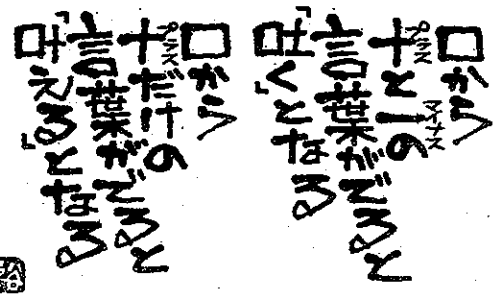 口から
十プラスと一マイナスの
言葉がでると
「吐く」となる
口から
十プラスだけの
言葉がでると
「叶える」となる